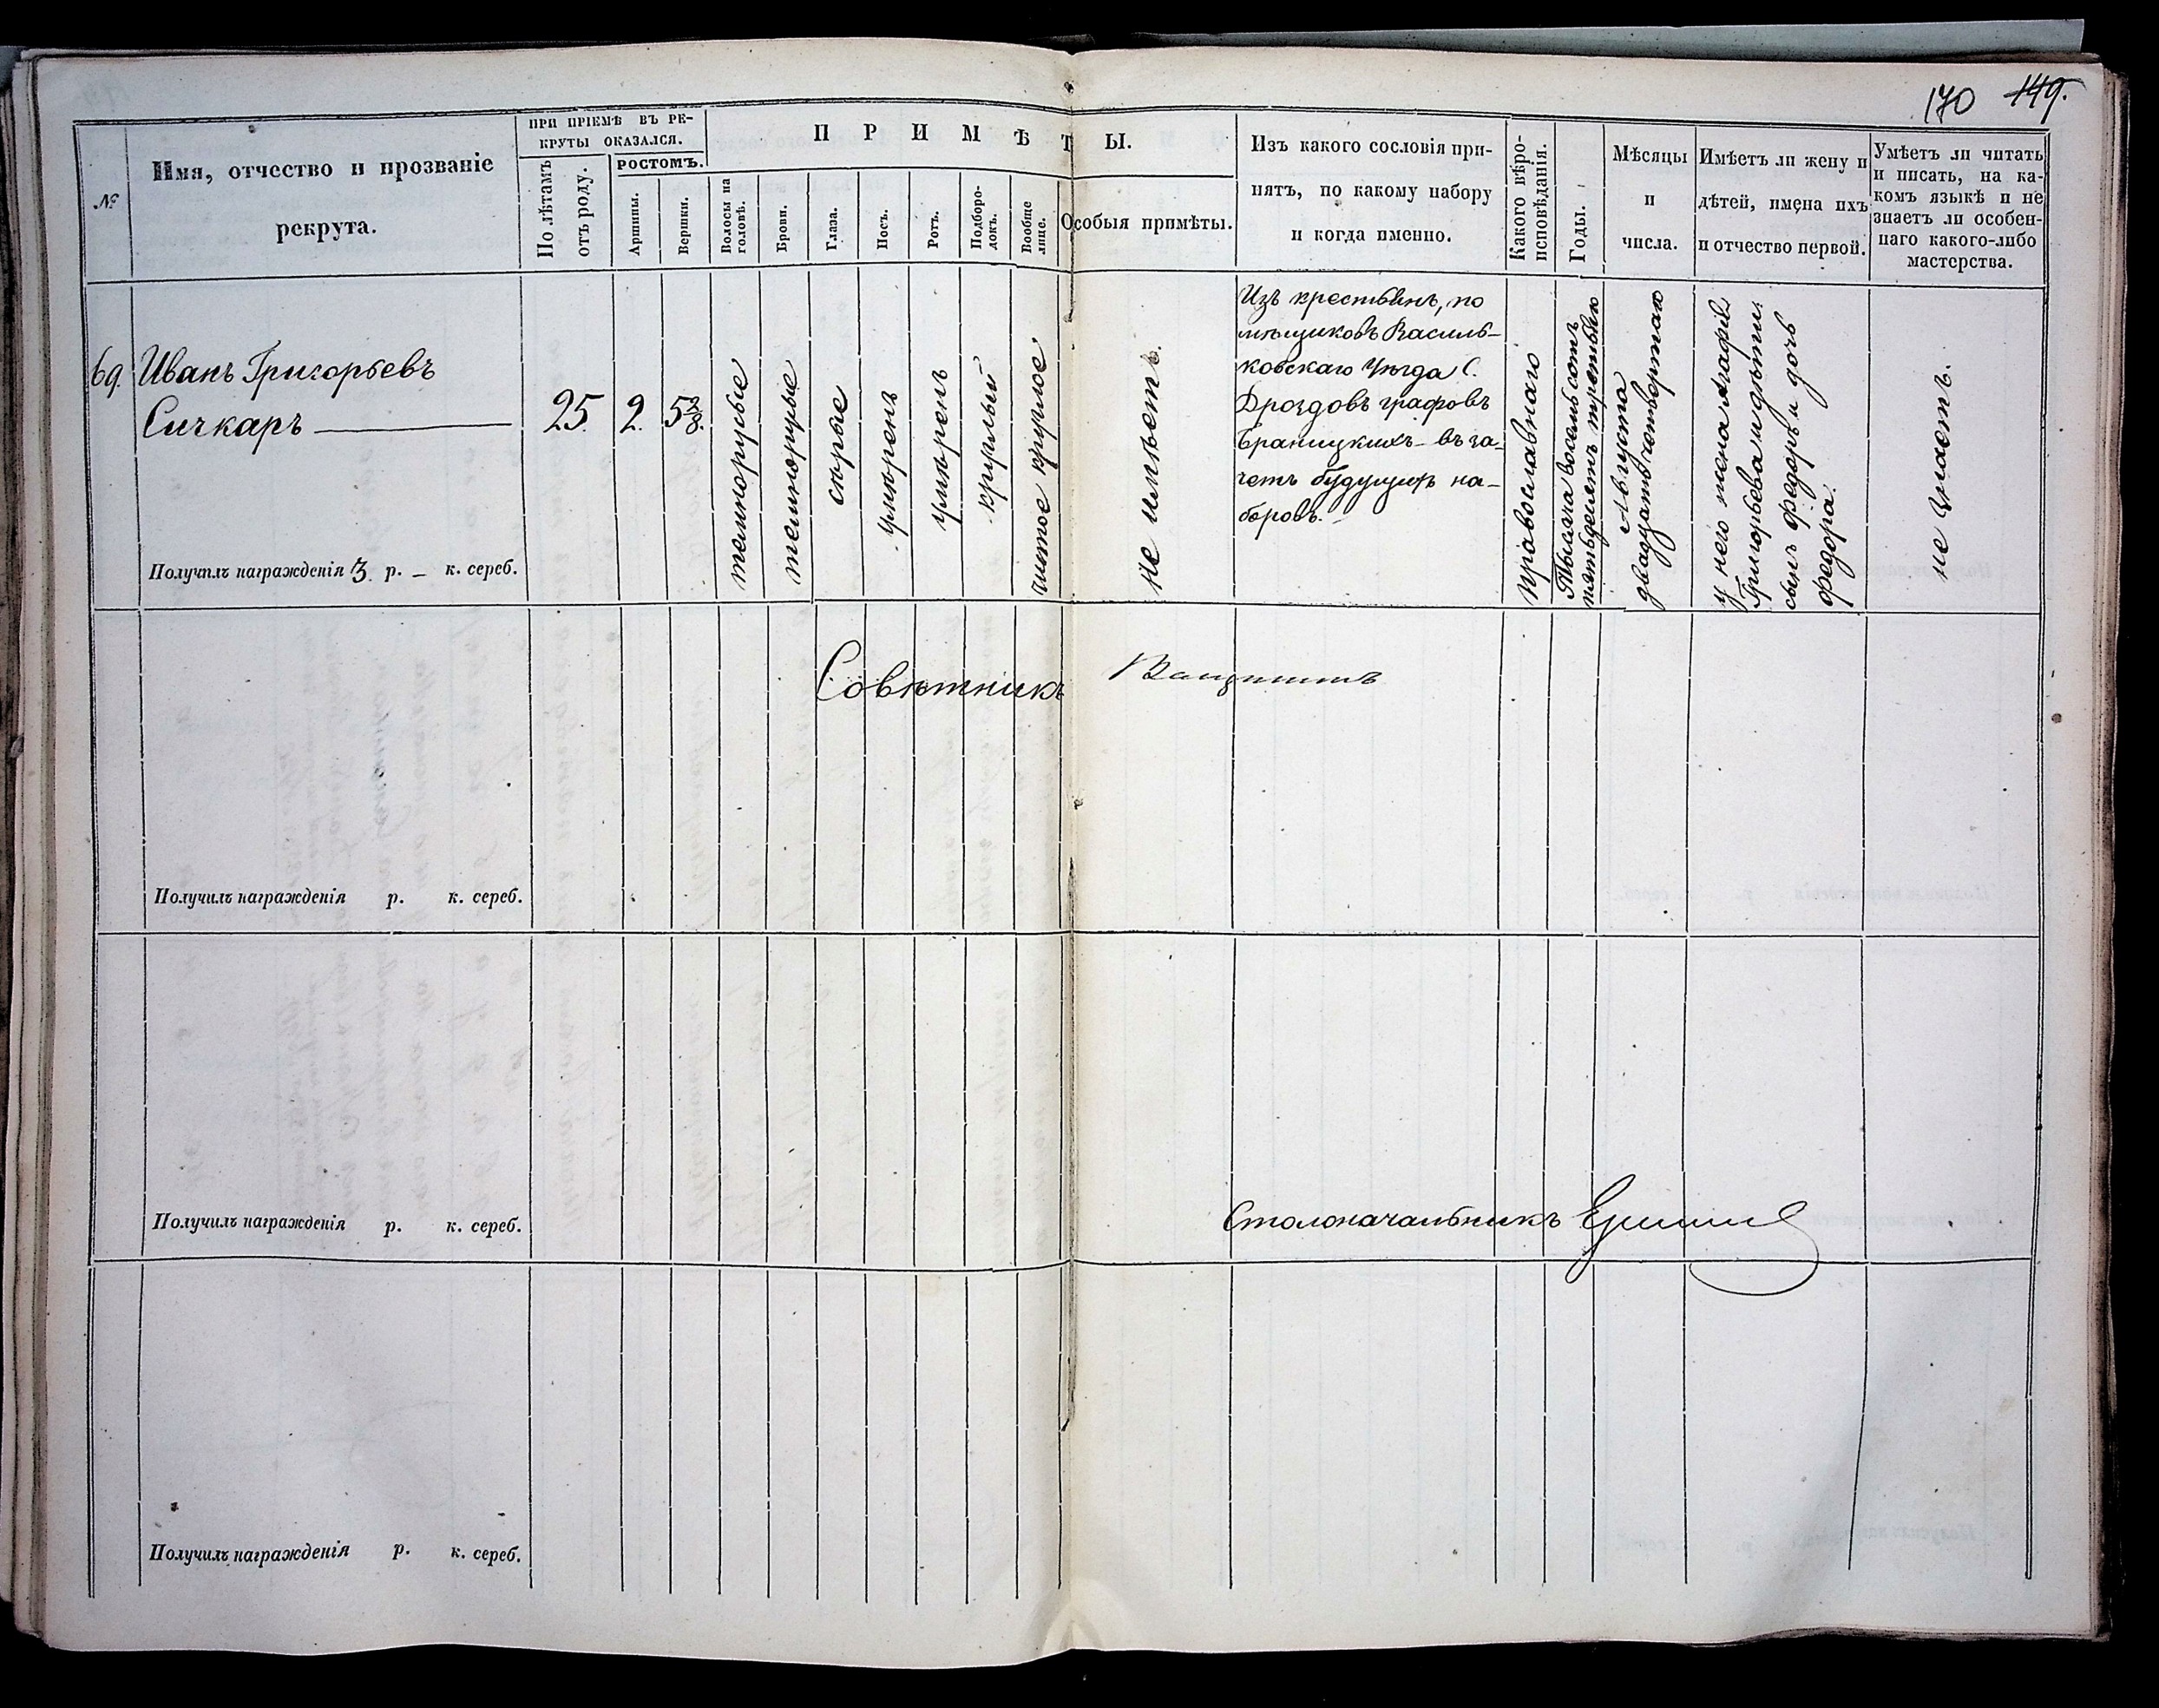 170 149.
№
Имя, отчество и прозваніе
рекрута.
ПРИ ПРІЕМѢ ВЪ РЕ-
КРУТЫ ОКАЗАЛСЯ.
По лѣтамъ
отъ роду.
РОСТОМЪ.
Аршины.
Вершки.
П Р И М Ѣ Т Ы.
Волосы на
головѣ.
Брови.
Глаза.
Носъ.
Ротъ.
Подборо-
докъ.
Вообще
лице.
Особыя примѣты.
Изъ какого сословія при-
нятъ, по какому набору
и когда именно.
Какого вѣро-
исповѣданія.
Годы.
Мѣсяцы
и
числа.
Имѣетъ ли жену и
дѣтей, имена ихъ
и отчество первой.
Умѣетъ ли читать
и писать, на ка-
комъ языкѣ и не
знаетъ ли особен-
наго какого-либо
мастерства.
69.
Иванъ Григорьевъ
Сичкаръ
Получилъ награжденія 3 р. – к. сереб.
25.
2.
5 3/8.
темнорусые
темнорусые
сѣрые
умѣренъ
умѣренъ
круглый
чистое круглое
не имѣетъ.
Изъ крестьянъ, по
мѣщиковъ Василь-
ковскаго Уѣзда С.
Дроздовъ графовъ
Браницкихъ – въ за-
четъ будущихъ на-
боровъ. –
православнаго
Тысяча восемьсотъ
пятьдесятъ третьяго
Августа
двадцать четвертаго
у него жена Агафія
Григорьева и дѣти:
сынъ Федоръ и дочь
Федора.
не знаетъ.
Совѣтникъ
Получилъ награжденія р. к. сереб.
Столоначальникъ
Получилъ награжденія р. к. сереб.
Получилъ награжденія р. к. сереб.